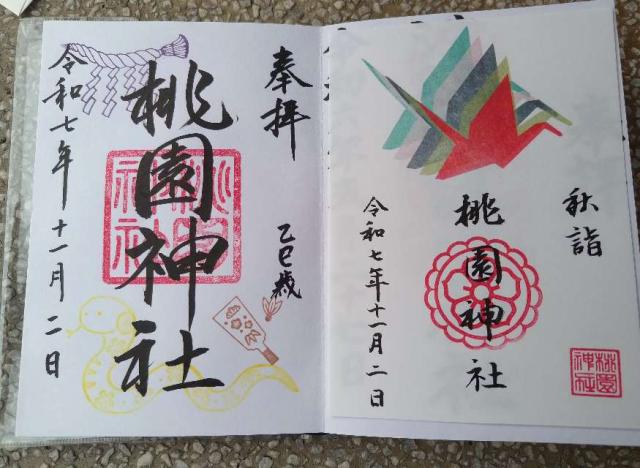 奉拝
乙巳歳
桃園神社
桃園神社
令和七年十一月二日
秋詣
桃園神社
桃園神社
令和七年十一月二日